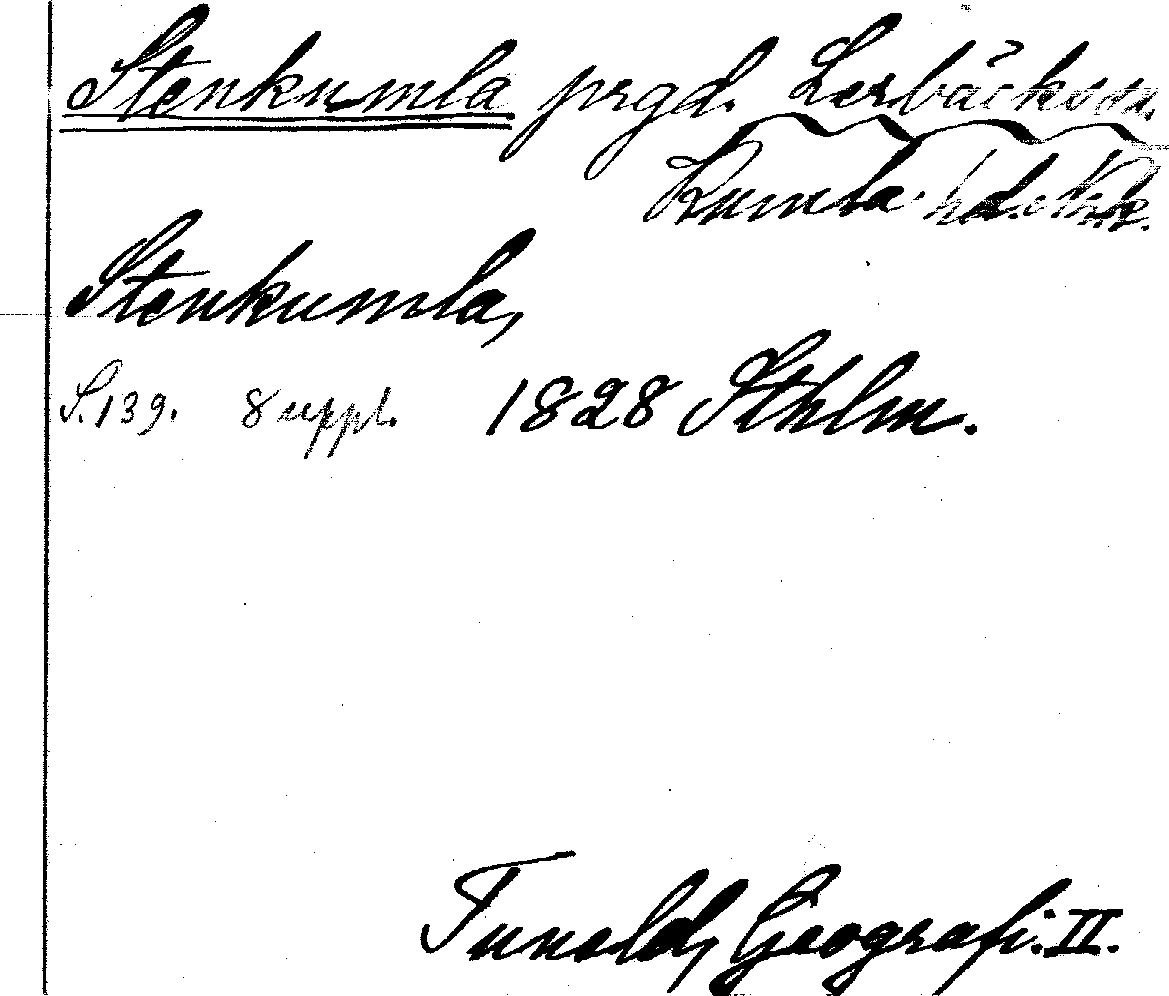 Stenkumla prgd. Lerbäcks sn.
Kumla hd. Nke.
Stenkumla,
S. 139. Suppl. 1828 Sthlm.
Tuneld, Geografi. II.